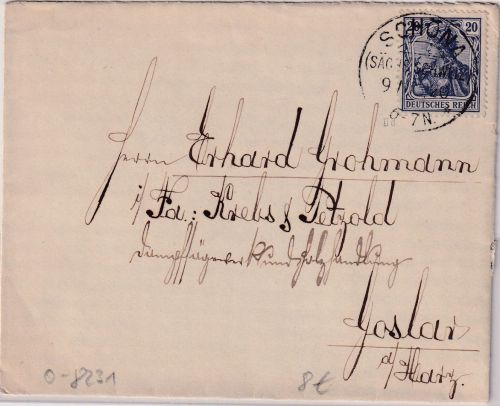 20
SCHÖNA
(SÄCHS. SCHWEIZ)
DEUTSCHES REICH
6-7N.
Herrn Erhard Grohmann
i/ Fa.: Krebs & Petzold
Dampfsägewerk und Holzhandlung
Goslar
a/Harz.
0-8231
8€